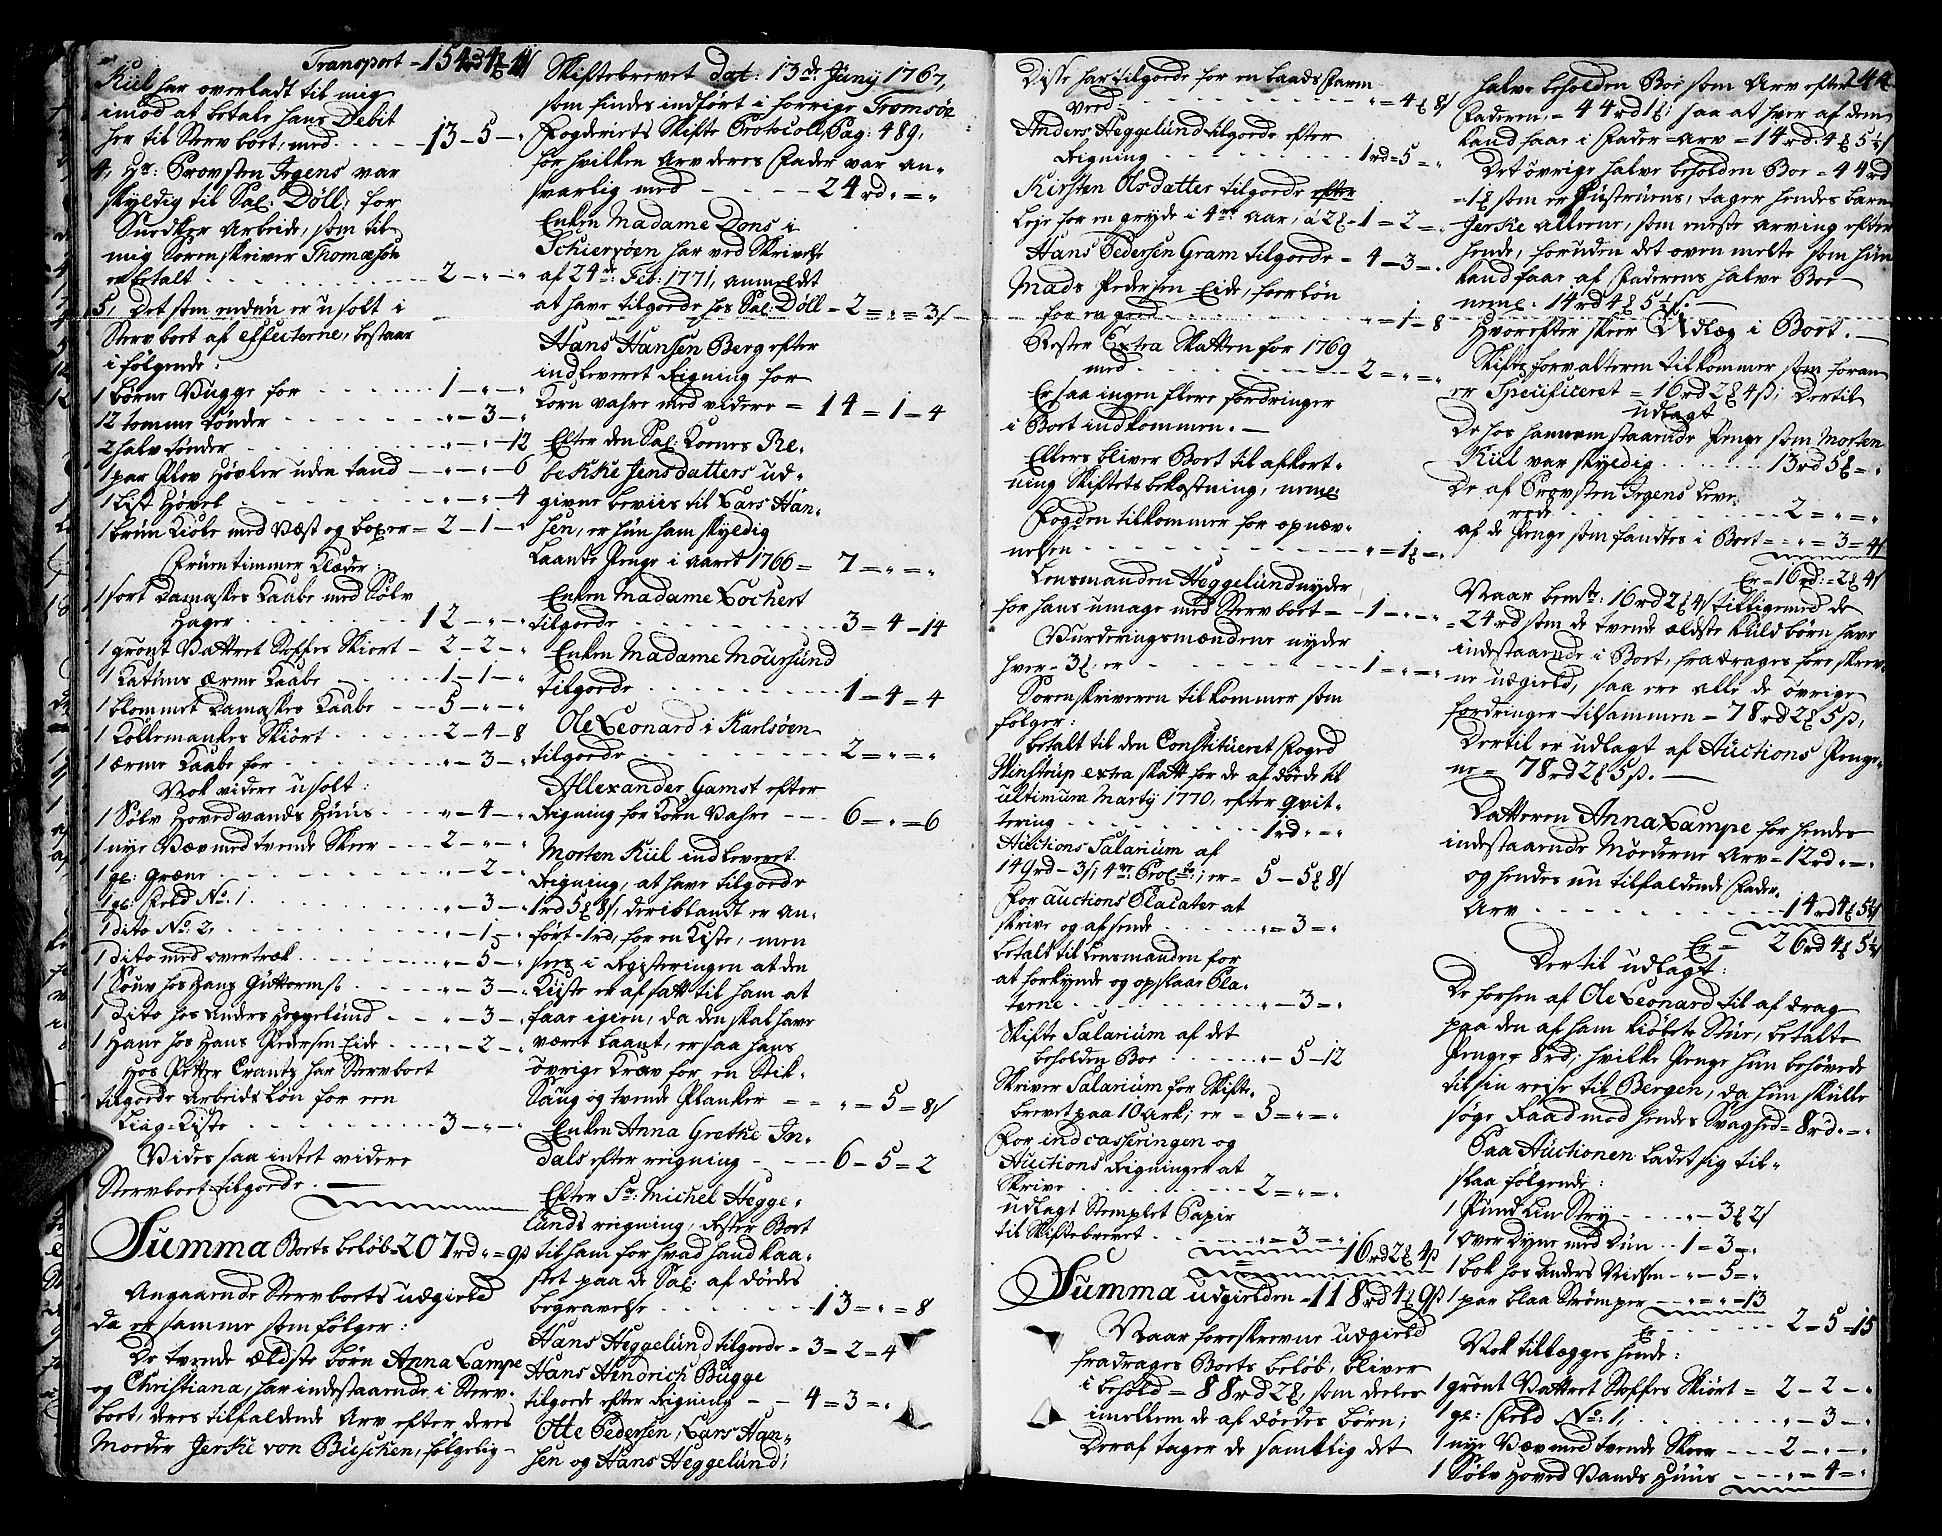 Transport - 154 - 3 - 4 - 11
Kiil har overladt til mig
imod at betale hans Debit
her til Stervboet, med - 13 - 5 - "
4, Hr: Provsten Irgens var
skyldig til Sal: Döll, for
Snedker Arbeide, som til
mig Sorenskriver Thomæson
er betalt - 2 - " - "
5, Det som endnu er usolt i
Stervboet af Effecterne, bestaar
i følgende:
1 børne Vugge for - 1 - " - "
12 tomme tønder - " - 3 - "
2 halv tønder - " - " - 12
1 par Plov Høvler uden tand - " - " - 6
1 List Høvel - " - " - 4
1 bruun Kiole med Væst og boxer = 2 - 1 - "
Fruentimmer Klæder:
1 sort Damaskes Kaabe med Sølv
Hager - 12 - " - "
1 grønt Vattret Stoffes Skiort - 2 - 2 - "
1 Kattuns ærme Kaabe - 1 - 1 - "
1 blommet Damaskes Kaabe - 5 - " - "
1 Kollemankes Skiört - 2 - 4 - 8
1 ærme Kaabe for - " - 3 - "
Nok videre usolt:
1 Sølv Hovedvands Huus - " - 4 - "
1 nye Væv med tvende Skeer - 2 - " - "
1 gl: Græne - " - 2 - "
1 gl: Feld No: 1 - " - 3 - "
1 dito No: 2, - " - 1 - "
1 dito med overtræk - " - 5 - "
1 Souv hos Hans Guttorms: - " - 3 - "
1 Dito hos Anders Heggelund - " - 3 - "
1 Hane hos Hans Pedersen Eide - " - 2 - "
Hos Petter Crantz har Stervboet
tilgode Arbeids Løn for een
Liig-Kiste - 3 - " - "
Vides saa intet videre
Stervboet tilgode. -
Summa Boets beløb 207 rd " = 9 s
Angaaende Stervboets udgield
da er samme som følger:
De tvende ældste børn Anna Lampe
og Christiana, har indestaaende i Sterv-
boet, deres tilfaldende Arv efter deres
Moeder Jerke von Büscken, følgelig
Skiftebrevet dat: 13de Juny 1767,
som findes indført i forrige Tromsøe
Fogderiets Skifte Protocoll Pag: 489,
for hvilken Arv deres Fader var an-
svarlig med - 24 rd " = "
Enken Madame Dons i
Schiervøen har ved Skrivelse
af 24de Feb: 1771, anmeldt
at have tilgode hos Sal: Döll - 2 = " = 3 s
Hans Hansen Berg efter
indleveret Reigning for
Korn vahre med videre = 14 = 1 - 4
Efter den Sal: Kones Re-
bekke Jensdatters ud-
givne beviis til Lars Han-
sen, er hun ham skyldig
Laante Penge i Aaret 1766 = 7 = " = "
Enken Madame Lochert
tilgode - 3 = 4 - 14
Enken Madame Moursund
tilgode - 1 = 4 = 4
Ole Leonard i Karlsøen
tilgode - 2 = " = "
Allexander Gamst efter
Reigning for Korn Vahre - 6 = " = 6
Morten Kiil indleveret
Reigning, at have tilgode
1 rd 5 8 s, deriblandt er an-
ført 1 rd, for en Kiste, men
sees i Registeringen at den
Kiste er afsatt til ham at
faae igien, da den skal have
været Laant, er saa hans
øvrige Krav for en Stik-
Saug og tvende Planker - " = 5 = 8 s
Enken Anna Grethe In-
dals efter reigning - 6 - 5 = 2
Efter Sr: Michel Hegge-
lunds reigning, rester Boet
til ham for hvad hand kaa-
stet paa de Sal: afdødes
begravelse - 13 = " = 8
Hans Heggelund tilgode - 3 = 2 = 4
Hans Hindrich Bugge
tilgode efter Reigning - 4 = 3 = "
Otte Pedersen, Lars Han-
sen og Hans Heggelund;
Disse har tilgode for en baads farm
Veed - " = 4 8 s
Anders Heggelund tilgode efter
Reigning - 1 rd = 5 = "
Kirsten Olsdatter tilgode efter
Leje for en gryde i 4re aar, a 2 - 1 = 2 = "
Hans Pedersen Gram tilgode - 4 - 3 = "
Mads Pedersen Eide, forløn
for en gæd - " = 1 - 8
Rester Extra Skatten for 1769
med - 2 = " = "
Er saa ingen fleere fordringer
i Boet indkommen. -
Ellers bliver Boet til afkort-
ning Skiftets bekostning, nemlig
Fogden tilkommer for opnæv-
nelsen - " = 1 = "
Lensmanden Heggelund nyder
for hans umage med Stervboet - 1 - " = "
Vurderingsmændene nyder
hver - 3, er - 1 = " = "
Sorenskriveren tilkommer som
følger:
betalt til den Constitueret Foged
Winstrup extra skatt for de afdøde til
ultimum Marty 1770, efter qvit-
tering - 1 rd " = "
Auctions Salarium af
149 rd - 3 s, 4re Proct:, er = 5 - 5 8 s
For auctions Placater at
skrive og afsende - " = 3 = "
betalt til Lensmanden for
at forkynde og opslaae Pla-
terne - " - 3 = "
Skifte Salarium af det
beholden Boe - " - 5 - 12
Skriver Salarium for Skifte-
brevet paa 10 Ark; er - 3 = " = "
For indcasseringen og
Auctions Reigninger at
Skrive - 2 = " = "
udlagt Stemplet Papir
til Skiftebrevet - " = 3 = "
16 rd 2 4 s
Summa udgielden = 118 rd 4 9 s
Naar foreskrevne udgield
fradrages Boets beløb, bliver
i behold = 88 rd 2, som deeles
imellem de afdødes børn;
Deraf tager de samtlig det
244
halve beholden Boe som Arv efter
Faderen, - 44 rd 1, saa at hver af dem
Land faar i Fader-Arv = 14 rd: 4 5 1/3 s
Det øvrige halve beholden Boe = 44 rd
- 1 som er Hustruens, tager hendes barn
Jerke alleene, som eneste arving efter
hende, foruden det oven melte som hun
Land faar af Faderens halve Boe
neml: 14 rd 4 5 1/3 s. -
Hvorefter skeer Udlæg i Boet. -
Skifteforvalteren tilkommer som foran
er Specificeret = 16 rd 2 4 s; Dertil
udlagt
De hos ham ovenstaaende Penge som Morten
Kiil var skyldig - 13 rd 5 = "
De af Provsten Irgens leve-
rede - 2 = " = "
af de Penge som fandtes i Boet = " = 3 = 4 s
Er = 16 rd: = 2 4 s
Naar bemte: 16 rd 2 4 s tilligemed de
= 24 rd som de tvende ældste Kuld børn have
indestaaende i Boet, fradrages foreskrev-
ne udgield, saa ere alle de øvrige
fordringer tilsammen = 78 rd 2 5 s,
Dertil er udlagt af Auctions Penge-
ne = 78 rd 2 5 s. -
Datteren Anna Lampe for hendes
indestaaende Moederne Arv = 12 rd = "
og hendes nu tilfaldende Fader-
Arv - 14 rd 4 5 1/3 s
Er = 26 rd 4 5 1/3 s
Dertil udlagt:
De forhen af Ole Leonard til afdrag
paa den af ham kiøbte Stue, betalte
Penge = 8 rd; hvilke Penge hun behøvede
til sin reise til Bergen, da hun skulle
søge Raad mod hendes Svaghed = 8 rd " = "
Paa Auctionen ladet sig til-
slaa følgende:
1 Pund Liin Stry - " - 3 2 s
1 over Dyne med Duun - 1 = 3 = "
1 bok hos Anders Nilsen - " - 5 = "
1 par blaa Strømper - " = " = 13
Er - 2 = 5 = 15
Nok tillegges hende:
1 grønt Vattret Stoffes Skiört = 2 - 2 - "
1 gl: Feld No: 1, - " - 3 - "
1 nye Væv med tvende Skeer - 2 - " - "
1 Sølv Hoved Vands Huus - " = 4 = "